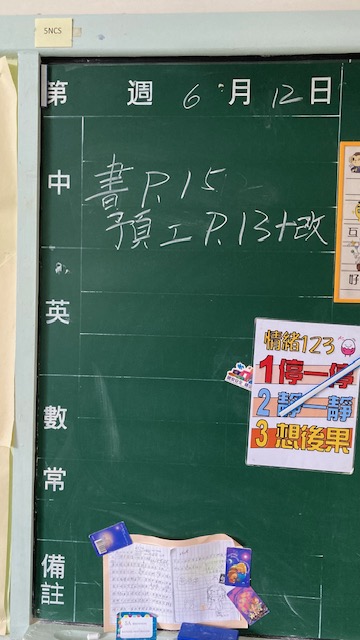 5NCS
第 週 6 月 12 日
中
書 P.15
預工 P.13+改
英
數
常
備註
情緒123
1 停一停
2 靜一靜
3 想後果
互
好